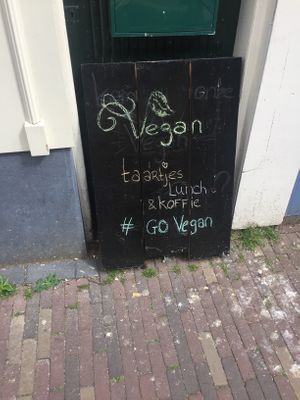 Vegan
taartjes
Lunch
& KOFFIE
# GO Vegan